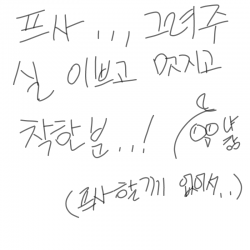 프사 ... 그려주
실 이쁘고 멋지고
착한분..!
(프사 할기기 없어서..)